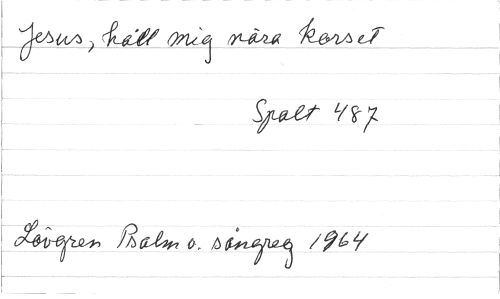 Jesus, håll mig nära korset
Spalt 487
Lövgren Psalm o. sångreg 1964